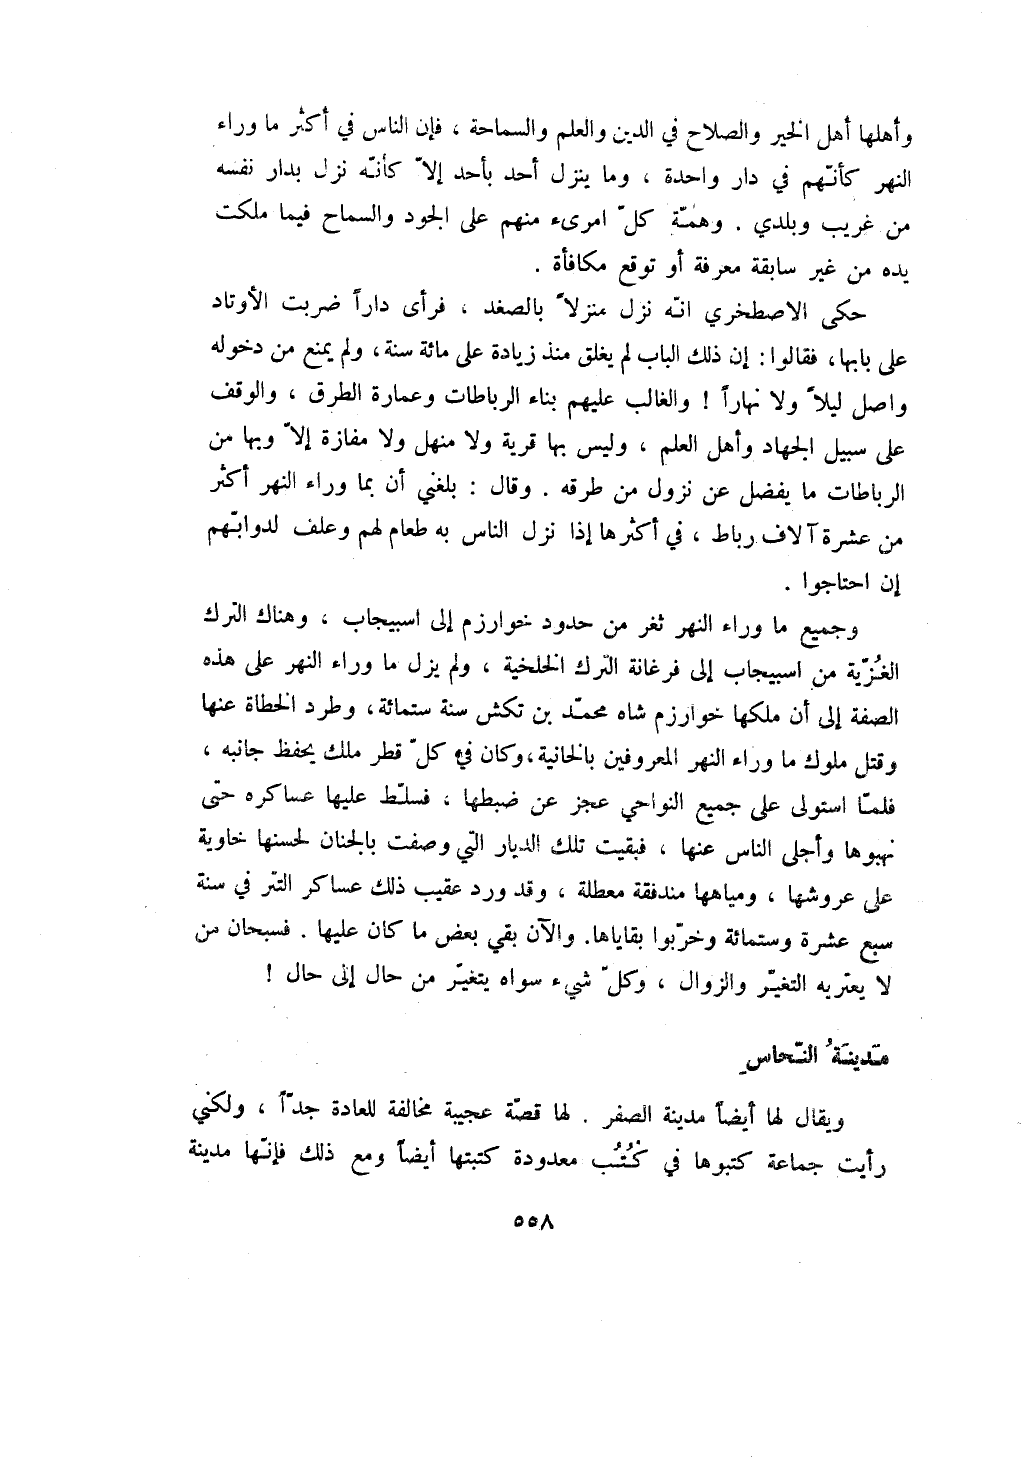 وأهلها أهل الخير والصلاح في الدين والعلم والسماحة ، فإن الناس في أكثر ما وراء
النهر كأنّهم في دار واحدة ، وما ينزل أحد بأحد إلاّ كأنّه نزل بدار نفسه
من غريب وبلدي . وهمّة كلّ امرىء منهم على الجود والسماح فيما ملكت
يده من غير سابقة معرفة أو توقع مكافأة .
حكى الاصطخري انّه نزل منزلاً بالصغد ، فرأى داراً ضربت الأوتاد
على بابها، فقالوا : إن ذلك الباب لم يغلق منذ زيادة على مائة سنة، ولم يمنع من دخوله
واصل ليلاً ولا نهاراً ! والغالب عليهم بناء الرباطات وعمارة الطرق ، والوقف
على سبيل الجهاد وأهل العلم ، وليس بها قرية ولا منهل ولا مفازة إلاّ وبها من
الرباطات ما يفضل عن نزول من طرقه . وقال : بلغني أن بما وراء النهر أكثر
من عشرة آلاف رباط ، في أكثرها إذا نزل الناس به طعام لهم وعلف لدوابّهم
إن احتاجوا .
وجميع ما وراء النهر ثغر من حدود خوارزم إلى اسبيجاب ، وهناك الترك
الغُزّية من اسبيجاب إلى فرغانة الترك الخلخية ، ولم يزل ما وراء النهر على هذه
الصفة إلى أن ملكها خوارزم شاه محمّد بن تكش سنة ستمائة، وطرد الخطاة عنها
وقتل ملوك ما وراء النهر المعروفين بالخانية، وكان في كلّ قطر ملك يحفظ جانبه ،
فلمّا استولى على جميع النواحي عجز عن ضبطها ، فسلّط عليها عساكره حتّى
نهبوها وأجلى الناس عنها ، فبقيت تلك الديار التي وصفت بالجنان لحسنها خاوية
على عروشها ، ومياهها مندفقة معطلة ، وقد ورد عقيب ذلك عساكر التتر في سنة
سبع عشرة وستمائة وخرّبوا بقاياها. والآن بقي بعض ما كان عليها . فسبحان من
لا يعتريه التغيّر والزوال ، وكلّ شيء سواه يتغيّر من حال إلى حال !
مَدينَةُ النّحاسِ
ويقال لها أيضاً مدينة الصفر . لها قصّة عجيبة مخالفة للعادة جدّاً ، ولكني
رأيت جماعة كتبوها في كُتُب معدودة كتبتها أيضاً ومع ذلك فإنّها مدينة
٥٥٨